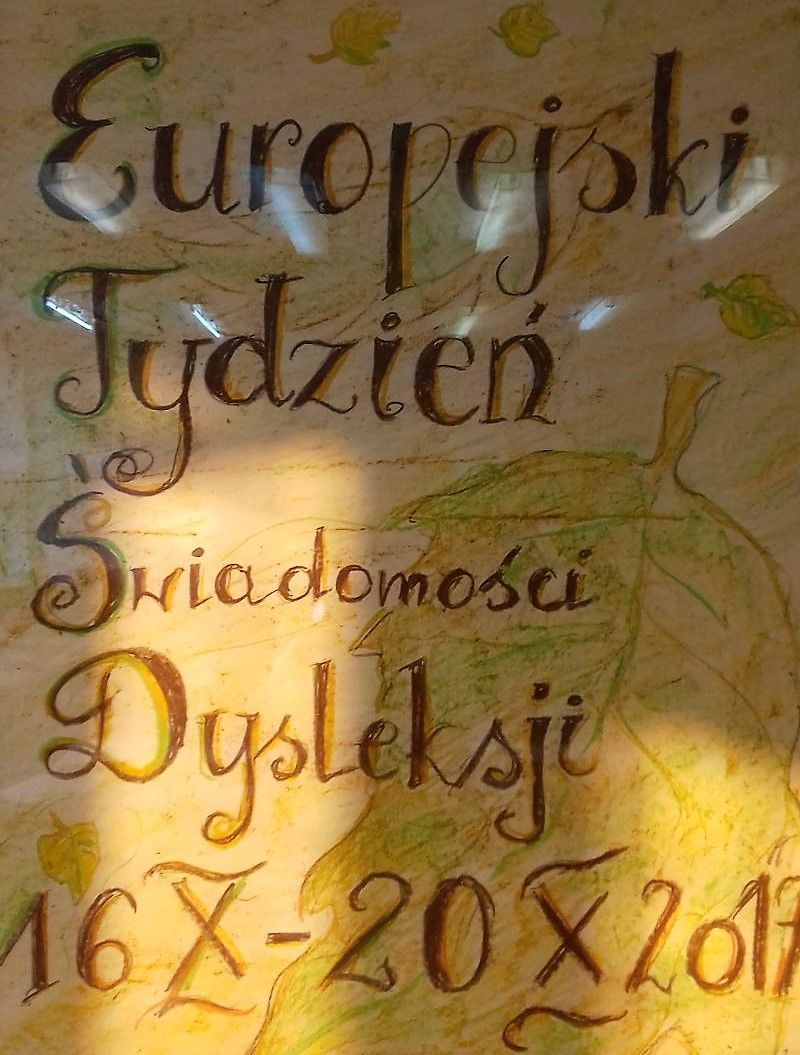 Europejski
Tydzień
Świadomości
Dysleksji
16 X - 20 X 2017